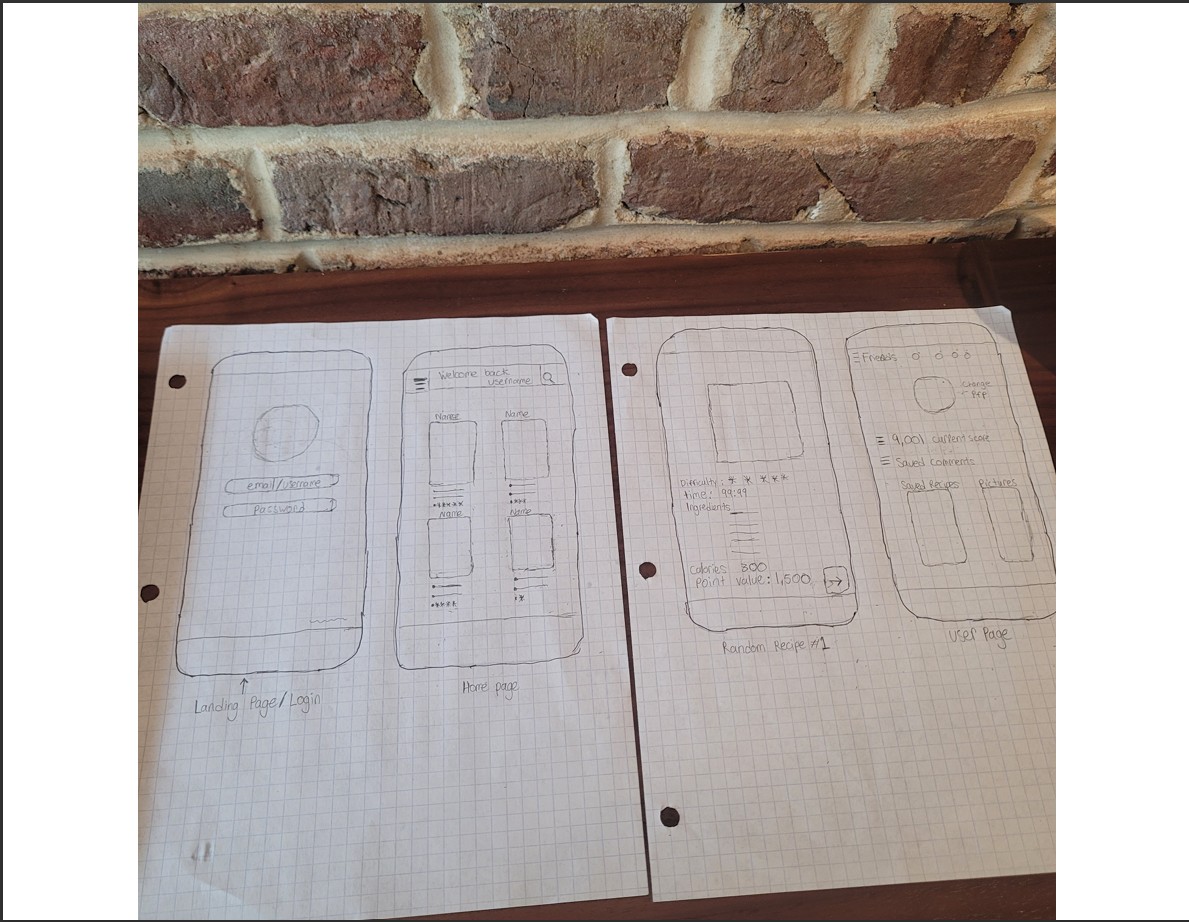 email/username
Password
Landing Page/Login
Welcome back
username
Name
Name
Name
Name
Home page
Difficulty: * * * * *
time: 99:99
Ingredients
Calories 300
Point value: 1,500
Random Recipe #1
Friends
Change
PFP
9,001 current score
Saved comments
Saved Recipes
Pictures
User Page